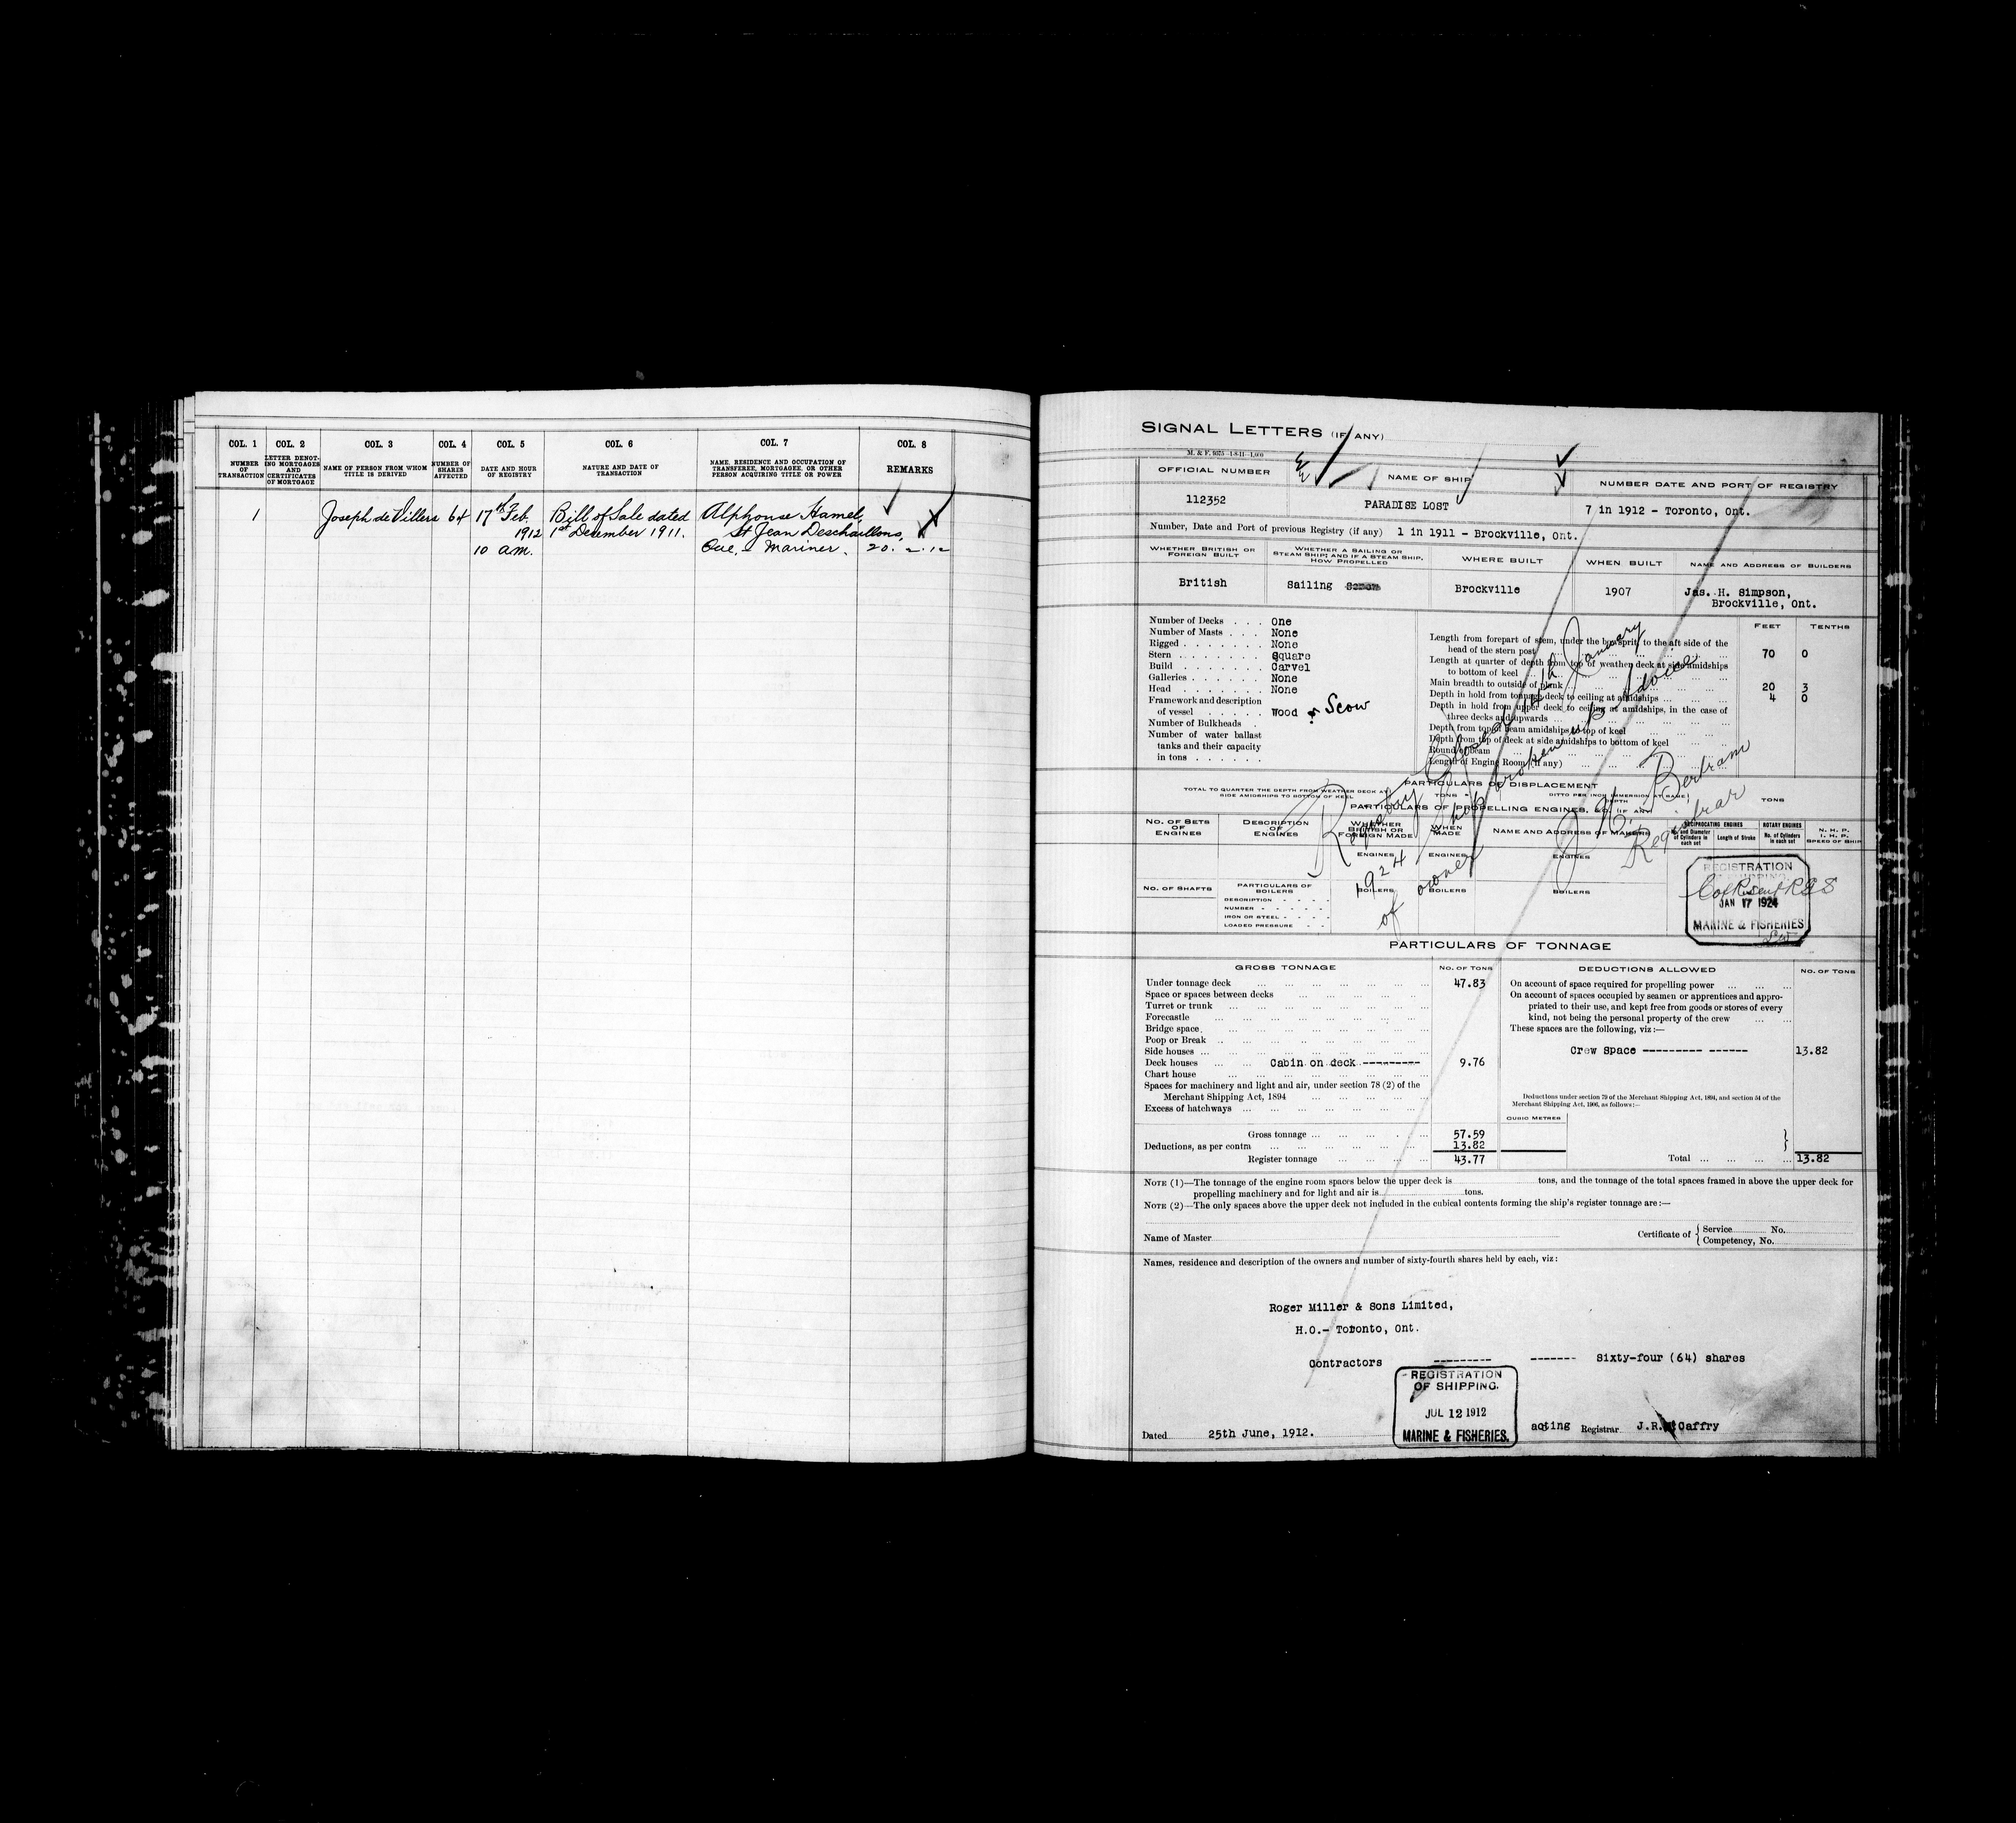 COL. 1 COL. 2 COL. 3 COL. 4 COL. 5 COL. 6 COL. 7 COL. 8
NUMBER OF TRANSACTION
LETTER DENOTING MORTGAGES AND CERTIFICATES OF MORTGAGE
NAME OF PERSON FROM WHOM TITLE IS DERIVED
NUMBER OF SHARES AFFECTED
DATE AND HOUR OF REGISTRY
NATURE AND DATE OF TRANSACTION
NAME, RESIDENCE AND OCCUPATION OF TRANSFEREE, MORTGAGEE, OR OTHER PERSON ACQUIRING TITLE OR POWER
REMARKS
1 Joseph de Villers 64 17th Feb. Bill of Sale dated Alphonse Hamel,
1912 1st December 1911. St Jean Deschaillons,
10 a.m. Que. - Mariner. 20.2.12
SIGNAL LETTERS (IF ANY)
M. & F. 1-8-11
OFFICIAL NUMBER NAME OF SHIP NUMBER DATE AND PORT OF REGISTRY
112352 PARADISE LOST 7 in 1912 - Toronto, Ont.
Number, Date and Port of previous Registry (if any) 1 in 1911 - Brockville, Ont.
WHETHER BRITISH OR FOREIGN BUILT
WHETHER A SAILING OR STEAM SHIP; AND IF A STEAM SHIP, HOW PROPELLED
WHERE BUILT WHEN BUILT NAME AND ADDRESS OF BUILDERS
British Sailing Brockville 1907 Jas. H. Simpson,
Brockville, Ont.
Number of Decks One
Number of Masts None
Rigged None
Stern Square
Build Carvel
Galleries None
Head None
Framework and description
of vessel Wood Scow
Number of Bulkheads
Number of water ballast
tanks and their capacity
in tons
FEET TENTHS
Length from forepart of stem, under the bowsprit, to the aft side of the
head of the stern post 70 0
Length at quarter of depth from top of weather deck at side amidships
to bottom of keel
Main breadth to outside of plank 20 3
Depth in hold from tonnage deck to ceiling at amidships 4 0
Depth in hold from upper deck to ceiling at amidships, in the case of
three decks and upwards
Depth from top of beam amidships to top of keel
Depth from top of deck at side amidships to bottom of keel
Round of beam
Length of Engine Room (if any)
Registry Closed 14th January
1924 Ship broken up Advice
of owner
Bertram
Registrar
PARTICULARS OF DISPLACEMENT
TOTAL TO QUARTER THE DEPTH FROM WEATHER DECK AT SIDE AMIDSHIPS TO BOTTOM OF KEEL TONS DITTO PER INCH IMMERSION AT SAME DEPTH TONS
PARTICULARS OF PROPELLING ENGINES, &C. (IF ANY)
NO. OF SETS OF ENGINES
DESCRIPTION OF ENGINES
WHETHER BRITISH OR FOREIGN MADE
WHEN MADE
NAME AND ADDRESS OF MAKERS
RECIPROCATING ENGINES ROTARY ENGINES
No. and Diameter of Cylinders in each set Length of Stroke No. of Cylinders in each set
N. H. P.
I. H. P.
SPEED OF SHIP
ENGINES ENGINES ENGINES
NO. OF SHAFTS PARTICULARS OF BOILERS BOILERS BOILERS BOILERS
DESCRIPTION
NUMBER
IRON OR STEEL
LOADED PRESSURE
REGISTRATION
SHIPPING
JAN 17 1924
MARINE & FISHERIES
PARTICULARS OF TONNAGE
GROSS TONNAGE NO. OF TONS DEDUCTIONS ALLOWED NO. OF TONS
Under tonnage deck 47.83
Space or spaces between decks
Turret or trunk
Forecastle
Bridge space
Poop or Break
Side houses
Deck houses Cabin on deck --------- 9.76
Chart house
Spaces for machinery and light and air, under section 78 (2) of the
Merchant Shipping Act, 1894
Excess of hatchways
Gross tonnage 57.59
Deductions, as per contra 13.82
Register tonnage 43.77
On account of space required for propelling power
On account of spaces occupied by seamen or apprentices and appro-
priated to their use, and kept free from goods or stores of every
kind, not being the personal property of the crew
These spaces are the following, viz :—
Crew Space --------- ------ 13.82
Deductions under section 79 of the Merchant Shipping Act, 1894, and section 54 of the
Merchant Shipping Act, 1906, as follows:—
CUBIC METRES
Total 13.82
NOTE (1)—The tonnage of the engine room spaces below the upper deck is tons, and the tonnage of the total spaces framed in above the upper deck for
propelling machinery and for light and air is tons.
NOTE (2)—The only spaces above the upper deck not included in the cubical contents forming the ship's register tonnage are:—
Name of Master Certificate of Service No.
Competency, No.
Names, residence and description of the owners and number of sixty-fourth shares held by each, viz:
Roger Miller & Sons Limited,
H.O.- Toronto, Ont.
Contractors --------- ------- Sixty-four (64) shares
REGISTRATION
OF SHIPPING.
JUL 12 1912
MARINE & FISHERIES.
Dated 25th June, 1912. acting Registrar J.R.McCaffry